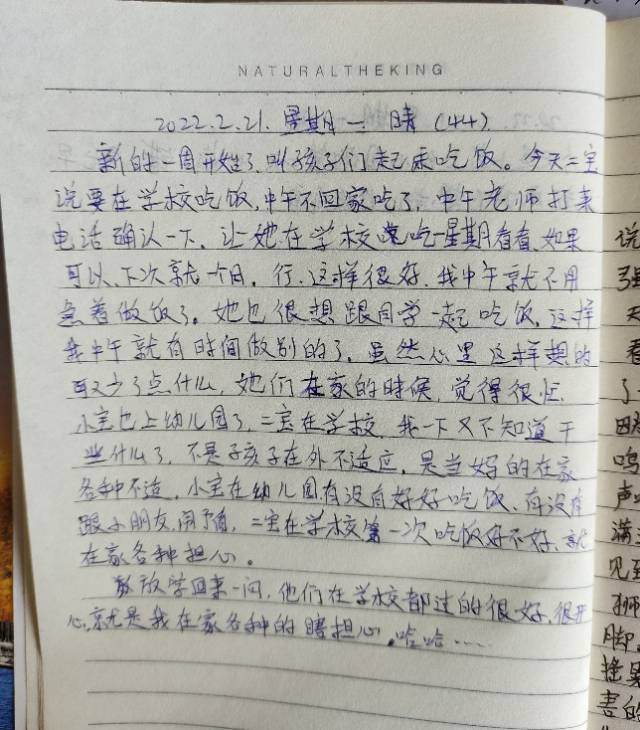 NATURALTHEKING
2022.2.21. 星期一. 晴 (44)
新的一周开始了, 叫孩子们起床吃饭。今天二宝
说要在学校吃饭, 中午不回家吃了, 中午老师打来
电话确认一下, 让她在学校吃一星期看看, 如果
可以, 下次就一个月. 行, 这样很好, 我中午就不用
急着做饭了, 她也很想跟同学一起吃饭, 这样
我中午就有时间做别的了, 虽然心里这样想的
又少了点什么, 她们在家的时候, 觉得很忙
小宝也上幼儿园了, 二宝在学校, 我一下又不知道干
些什么了, 不是孩子在外不适应, 是当妈的在家
各种不适, 小宝在幼儿园有没有好好吃饭, 有没有
跟小朋友, 二宝在学校第一次吃饭好不好, 就
在家各种担心。
放学回来一问, 他们在学校都过的很好, 很开
心, 就是我在家各种的瞎担心, 哈哈……
说
强
天
看
了
因为
鸣
声
满
见到
狮
脚
撞
害的